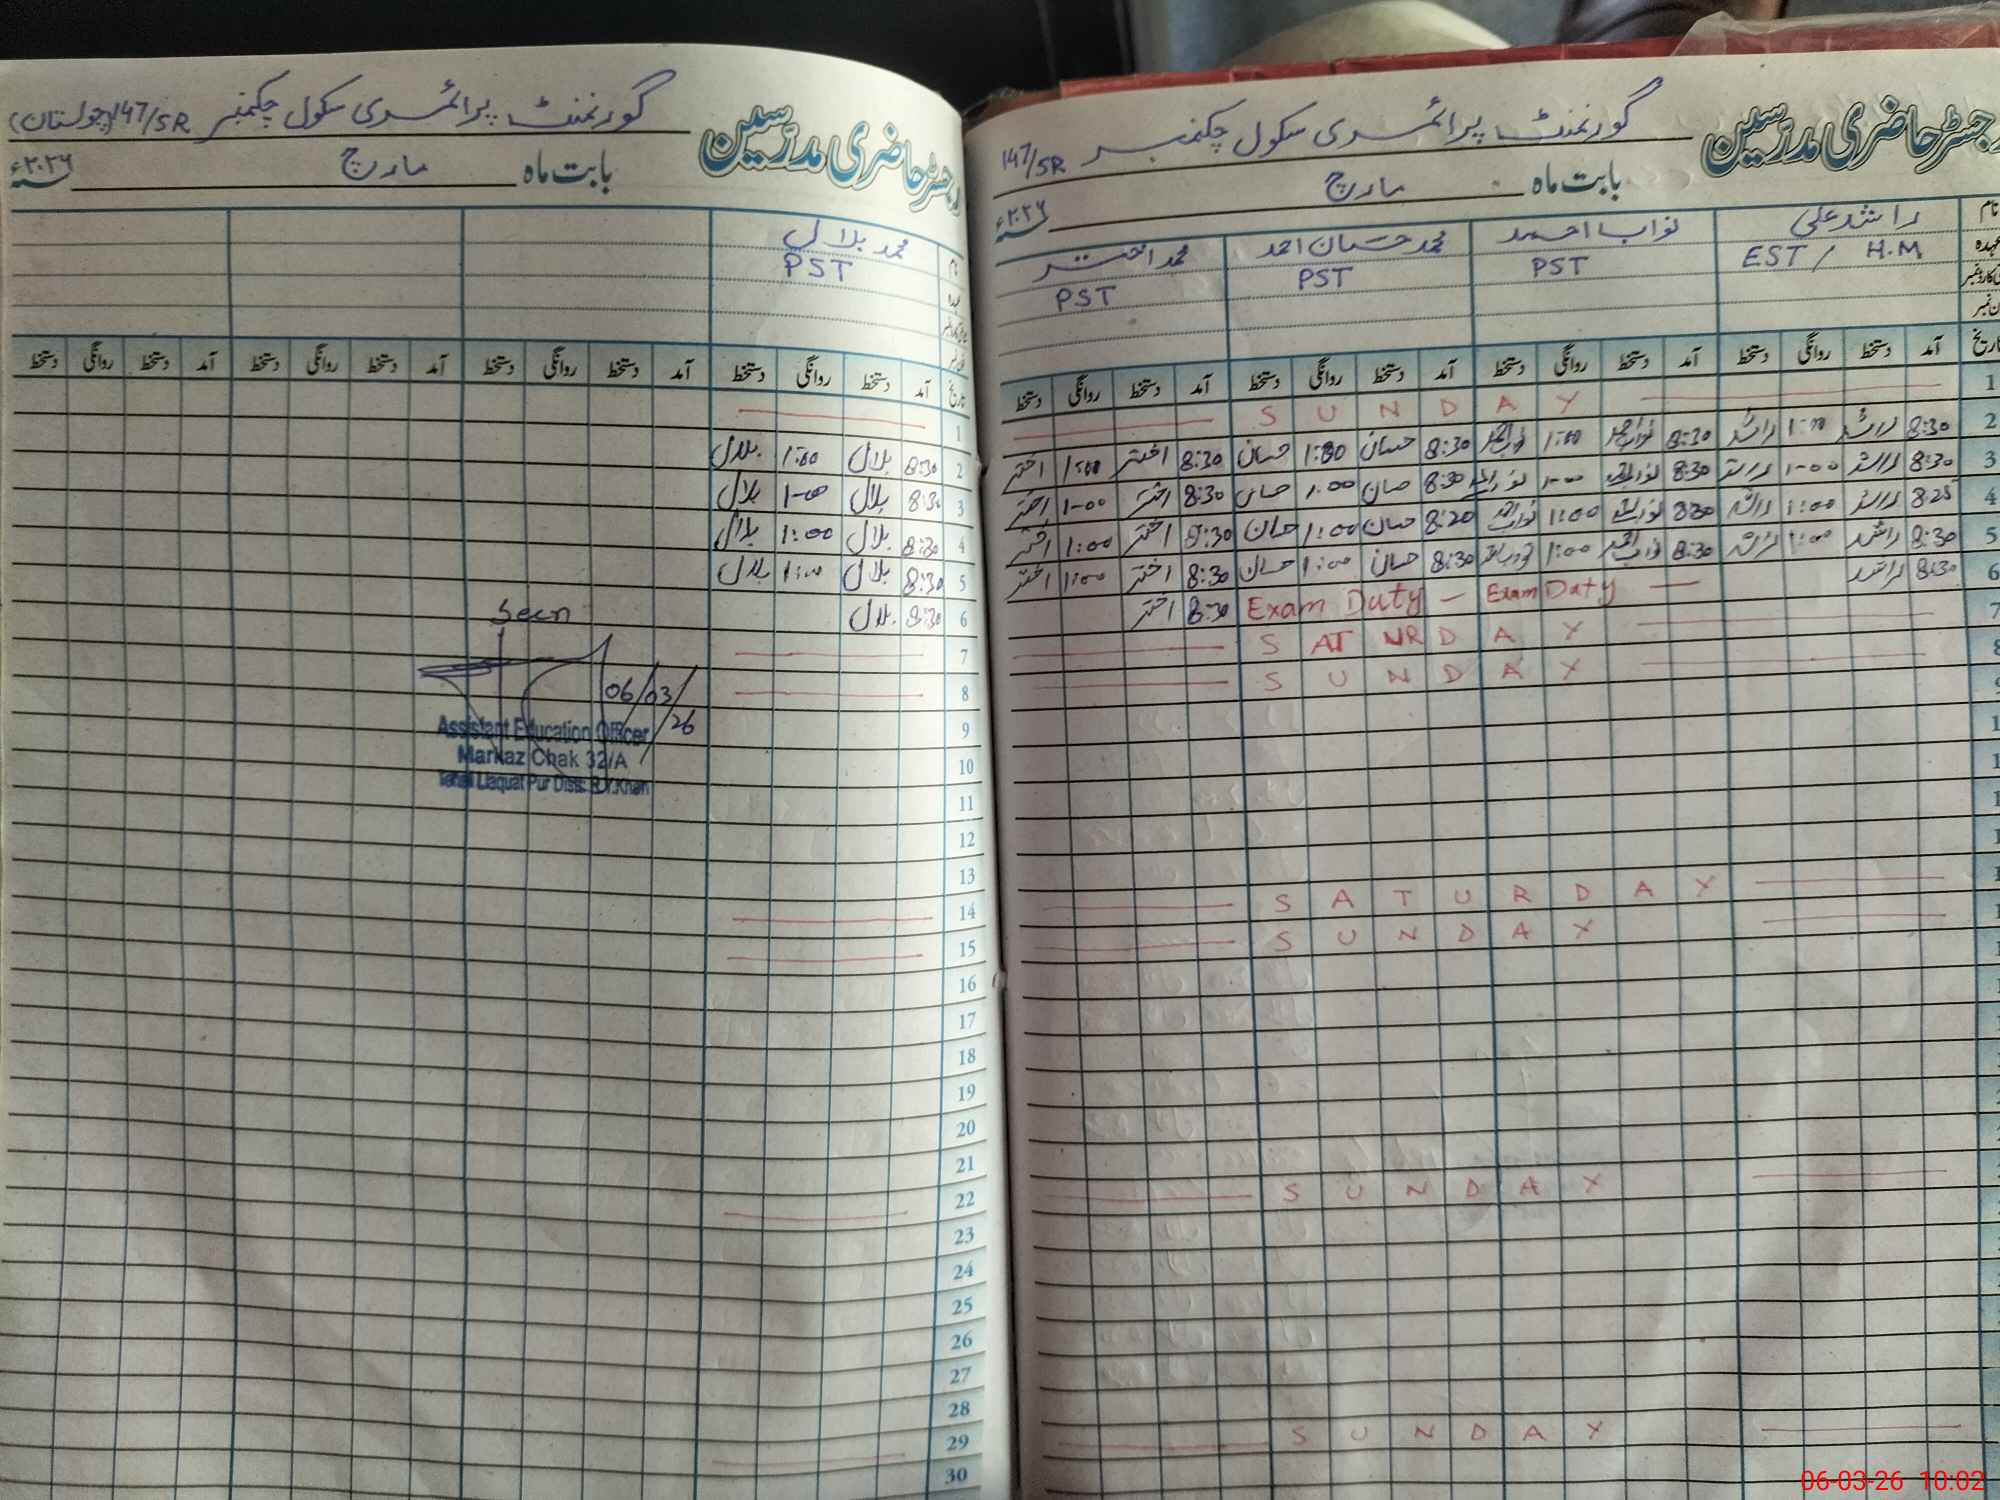 رجسٹر حاضری مدرسین گورنمنٹ پرائمری سکول چکنمبر 147/5R
بابت ماہ مارچ ۲۰۲۶ء
نام راشد علی نواب احمد محمد حسان احمد محمد اختر
عہدہ EST / H.M PST PST PST
تاریخ آمد دستخط روانگی دستخط آمد دستخط روانگی دستخط آمد دستخط روانگی دستخط آمد دستخط روانگی دستخط
1 S U N D A Y
2 8:30 راشد 1:00 راشد 8:30 نواب احمد 1:00 نواب احمد 8:30 حسان 1:00 حسان 8:30 اختر 1:00 اختر
3 8:30 راشد 1-00 راشد 8:30 نواب احمد 1-00 نواب احمد 8:30 حسان 1:00 حسان 8:30 اختر 1-00 اختر
4 8:25 راشد 1:00 راشد 8:30 نواب احمد 1:00 نواب احمد 8:20 حسان 1:00 حسان 8:30 اختر 1:00 اختر
5 8:30 راشد 1:00 راشد 8:30 نواب احمد 1:00 نواب احمد 8:30 حسان 1:00 حسان 8:30 اختر 1:00 اختر
6 8:30 راشد Exam Duty — Exam Duty — 8:30 اختر
7 S AT UR D A Y
8 S U N D A Y
S A T U R D A Y
S U N D A Y
S U N D A Y
S U N D A Y
رجسٹر حاضری مدرسین گورنمنٹ پرائمری سکول چکنمبر 147/5R (چولستان)
بابت ماہ مارچ ۲۰۲۶ء
نام محمد بلال
عہدہ PST
تاریخ آمد دستخط روانگی دستخط آمد دستخط روانگی دستخط آمد دستخط روانگی دستخط آمد دستخط روانگی دستخط
1
2 8:30 بلال 1:00 بلال
3 8:30 بلال 1-00 بلال
4 8:30 بلال 1:00 بلال
5 8:30 بلال 1:00 بلال
6 8:30 بلال
Seen
7
8
06/03/26
9
Assistant Education Officer
10
Markaz Chak 32/A
Tehsil Liaquat Pur Distt: R.Y.Khan
11
12
13
14
15
16
17
18
19
20
21
22
23
24
25
26
27
28
29
30
06-03-26 10:02